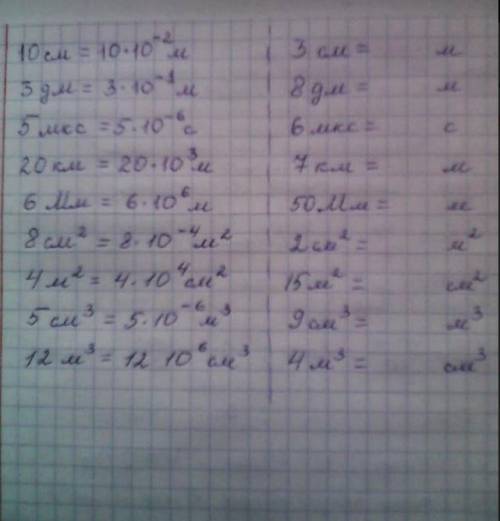 10 см = 10·10⁻² м
3 дм = 3·10⁻¹ м
5 мкс = 5·10⁻⁶ с
20 км = 20·10³ м
6 Мм = 6·10⁶ м
8 см² = 8·10⁻⁴ м²
4 м² = 4·10⁴ см²
5 см³ = 5·10⁻⁶ м³
12 м³ = 12 10⁶ см³
3 см = м
8 дм = м
6 мкс = с
7 км = м
50 Мм = м
2 см² = м²
15 м² = см²
9 см³ = м³
4 м³ = см³